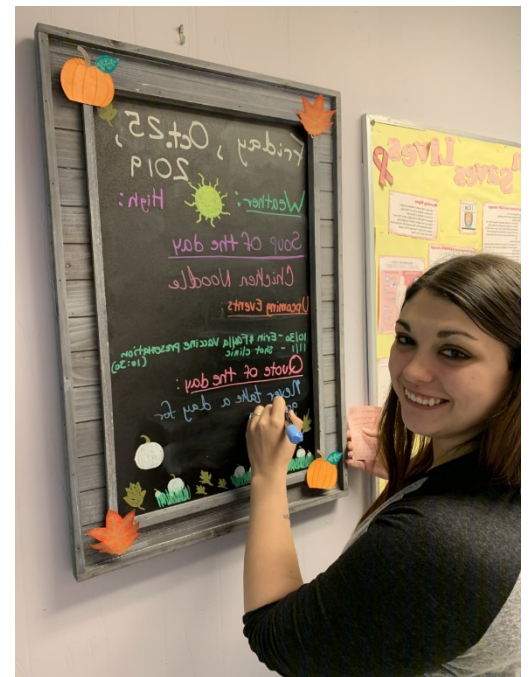 Friday, Oct. 25,
2019
Weather: High:
Soup of the day
Chicken Noodle
Upcoming Events
10/30 - Erin & Fayla Vaccine presentation
11/1 - Shot clinic (10:30)
Quote of the day:
Never take a day for
Saves Lives